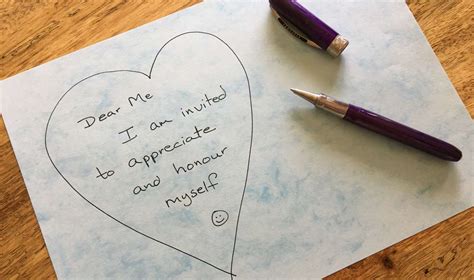 Dear Me
I am invited
to appreciate
and honour
myself